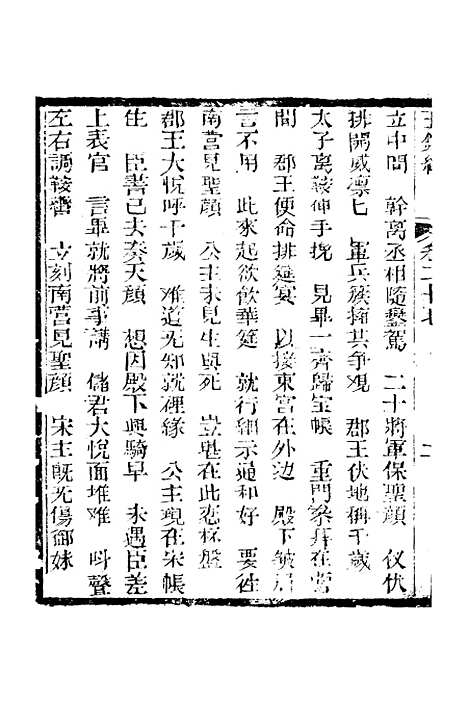 立中間　幹离丞相隨鑾駕　二十將軍保聖顔　仪伏
排開威凛匕　軍兵簇擁共爭观　郡王伏地稱千歲
太子离鞍伸手挽　見畢一齊歸宝帳　重門in在营
間　郡王使命排筵宴　以接東宮在外边　殿下皱眉
言不用　此來起欲飲華筵　就行細示通和好　要徃
南营見聖顔　公主未見生與死　豈堪在此恋杯盤
郡王大悦呼千歲　难道无知就裡緣　公主現在宋帳
生　臣書已去奏天顔　想因殿下興騎早　未遇臣差
上表官　言畢就將前事講　儲君大悅面堆难　叫聲
左右調鞍轡　立刻南营見聖顔　宋主既无傷御妹